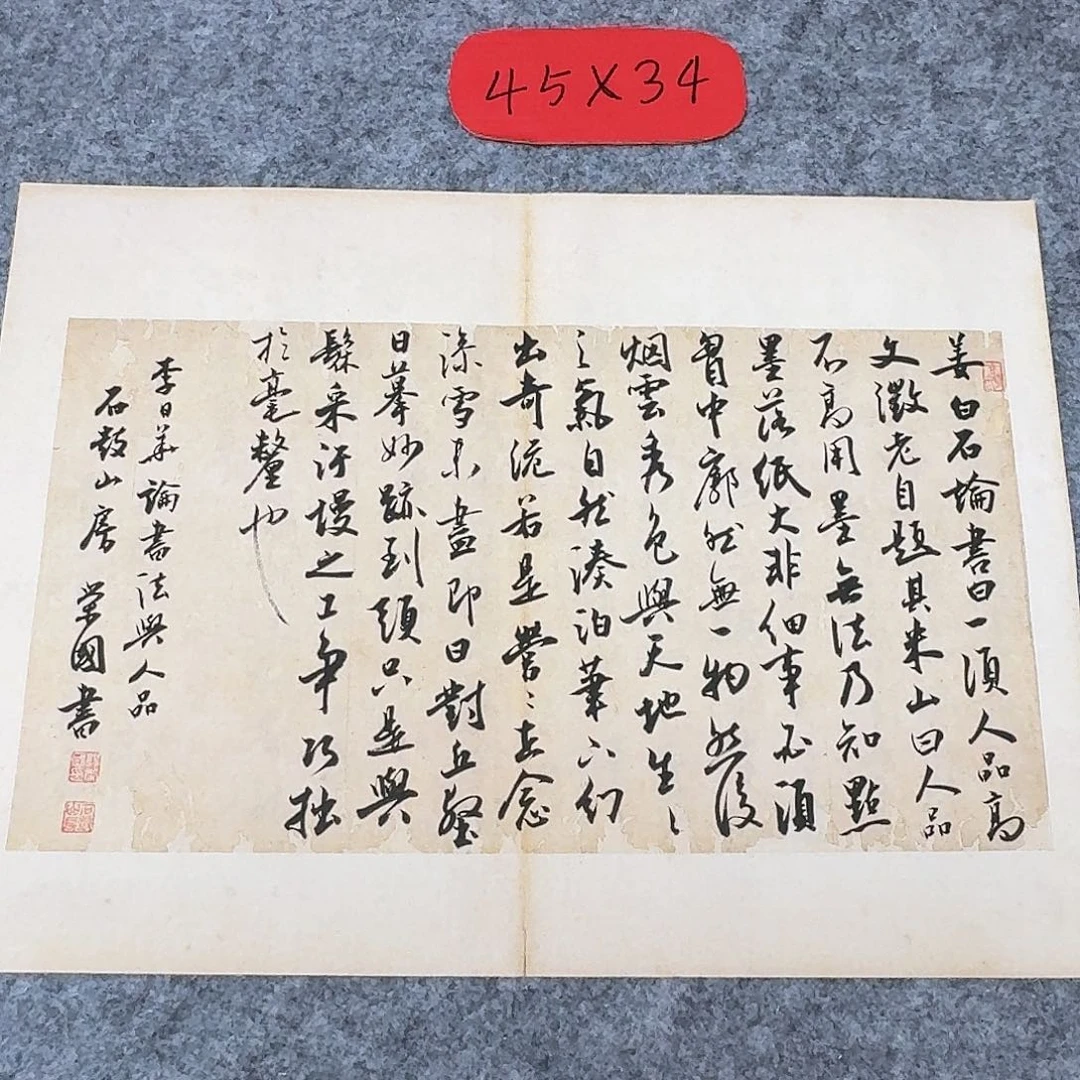 45X34
姜白石論書曰一須人品高
文徵老自題其米山曰人品
不高用墨无法乃知點
墨落紙大非細事必須
胷中廓然無一物然後
烟雲秀色與天地生〻
之氣自然湊泊筆下幻
出奇詭若是營〻世念
澡雪未盡即日對丘壑
日摹妙跡到頭只是與
髹采汙墁之工爭巧拙
於毫釐也
李日華論書法與人品
石鼓山房 榮國書